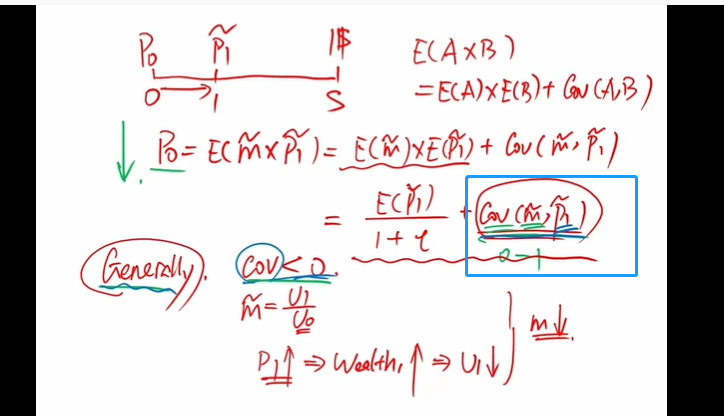 P₀ P̃₁ 1$
0 → 1 S
E(A×B)
=E(A)×E(B)+Cov(A,B)
↓ P₀ = E(m̃×P̃₁) = E(m̃)×E(P̃₁) + Cov(m̃, P̃₁)
= E(P̃₁)/1+r + Cov(m̃, P̃₁)
0-1
Generally. Cov < 0.
m̃ = U₁/U₀
m↓.
P₁↑ ⇒ Wealth₁↑ ⇒ U₁↓